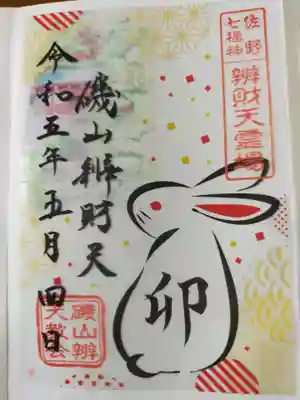 佐野
七福神
辨財天霊場
磯山辨財天
令和五年五月四日
卯
磯山辨
天教会